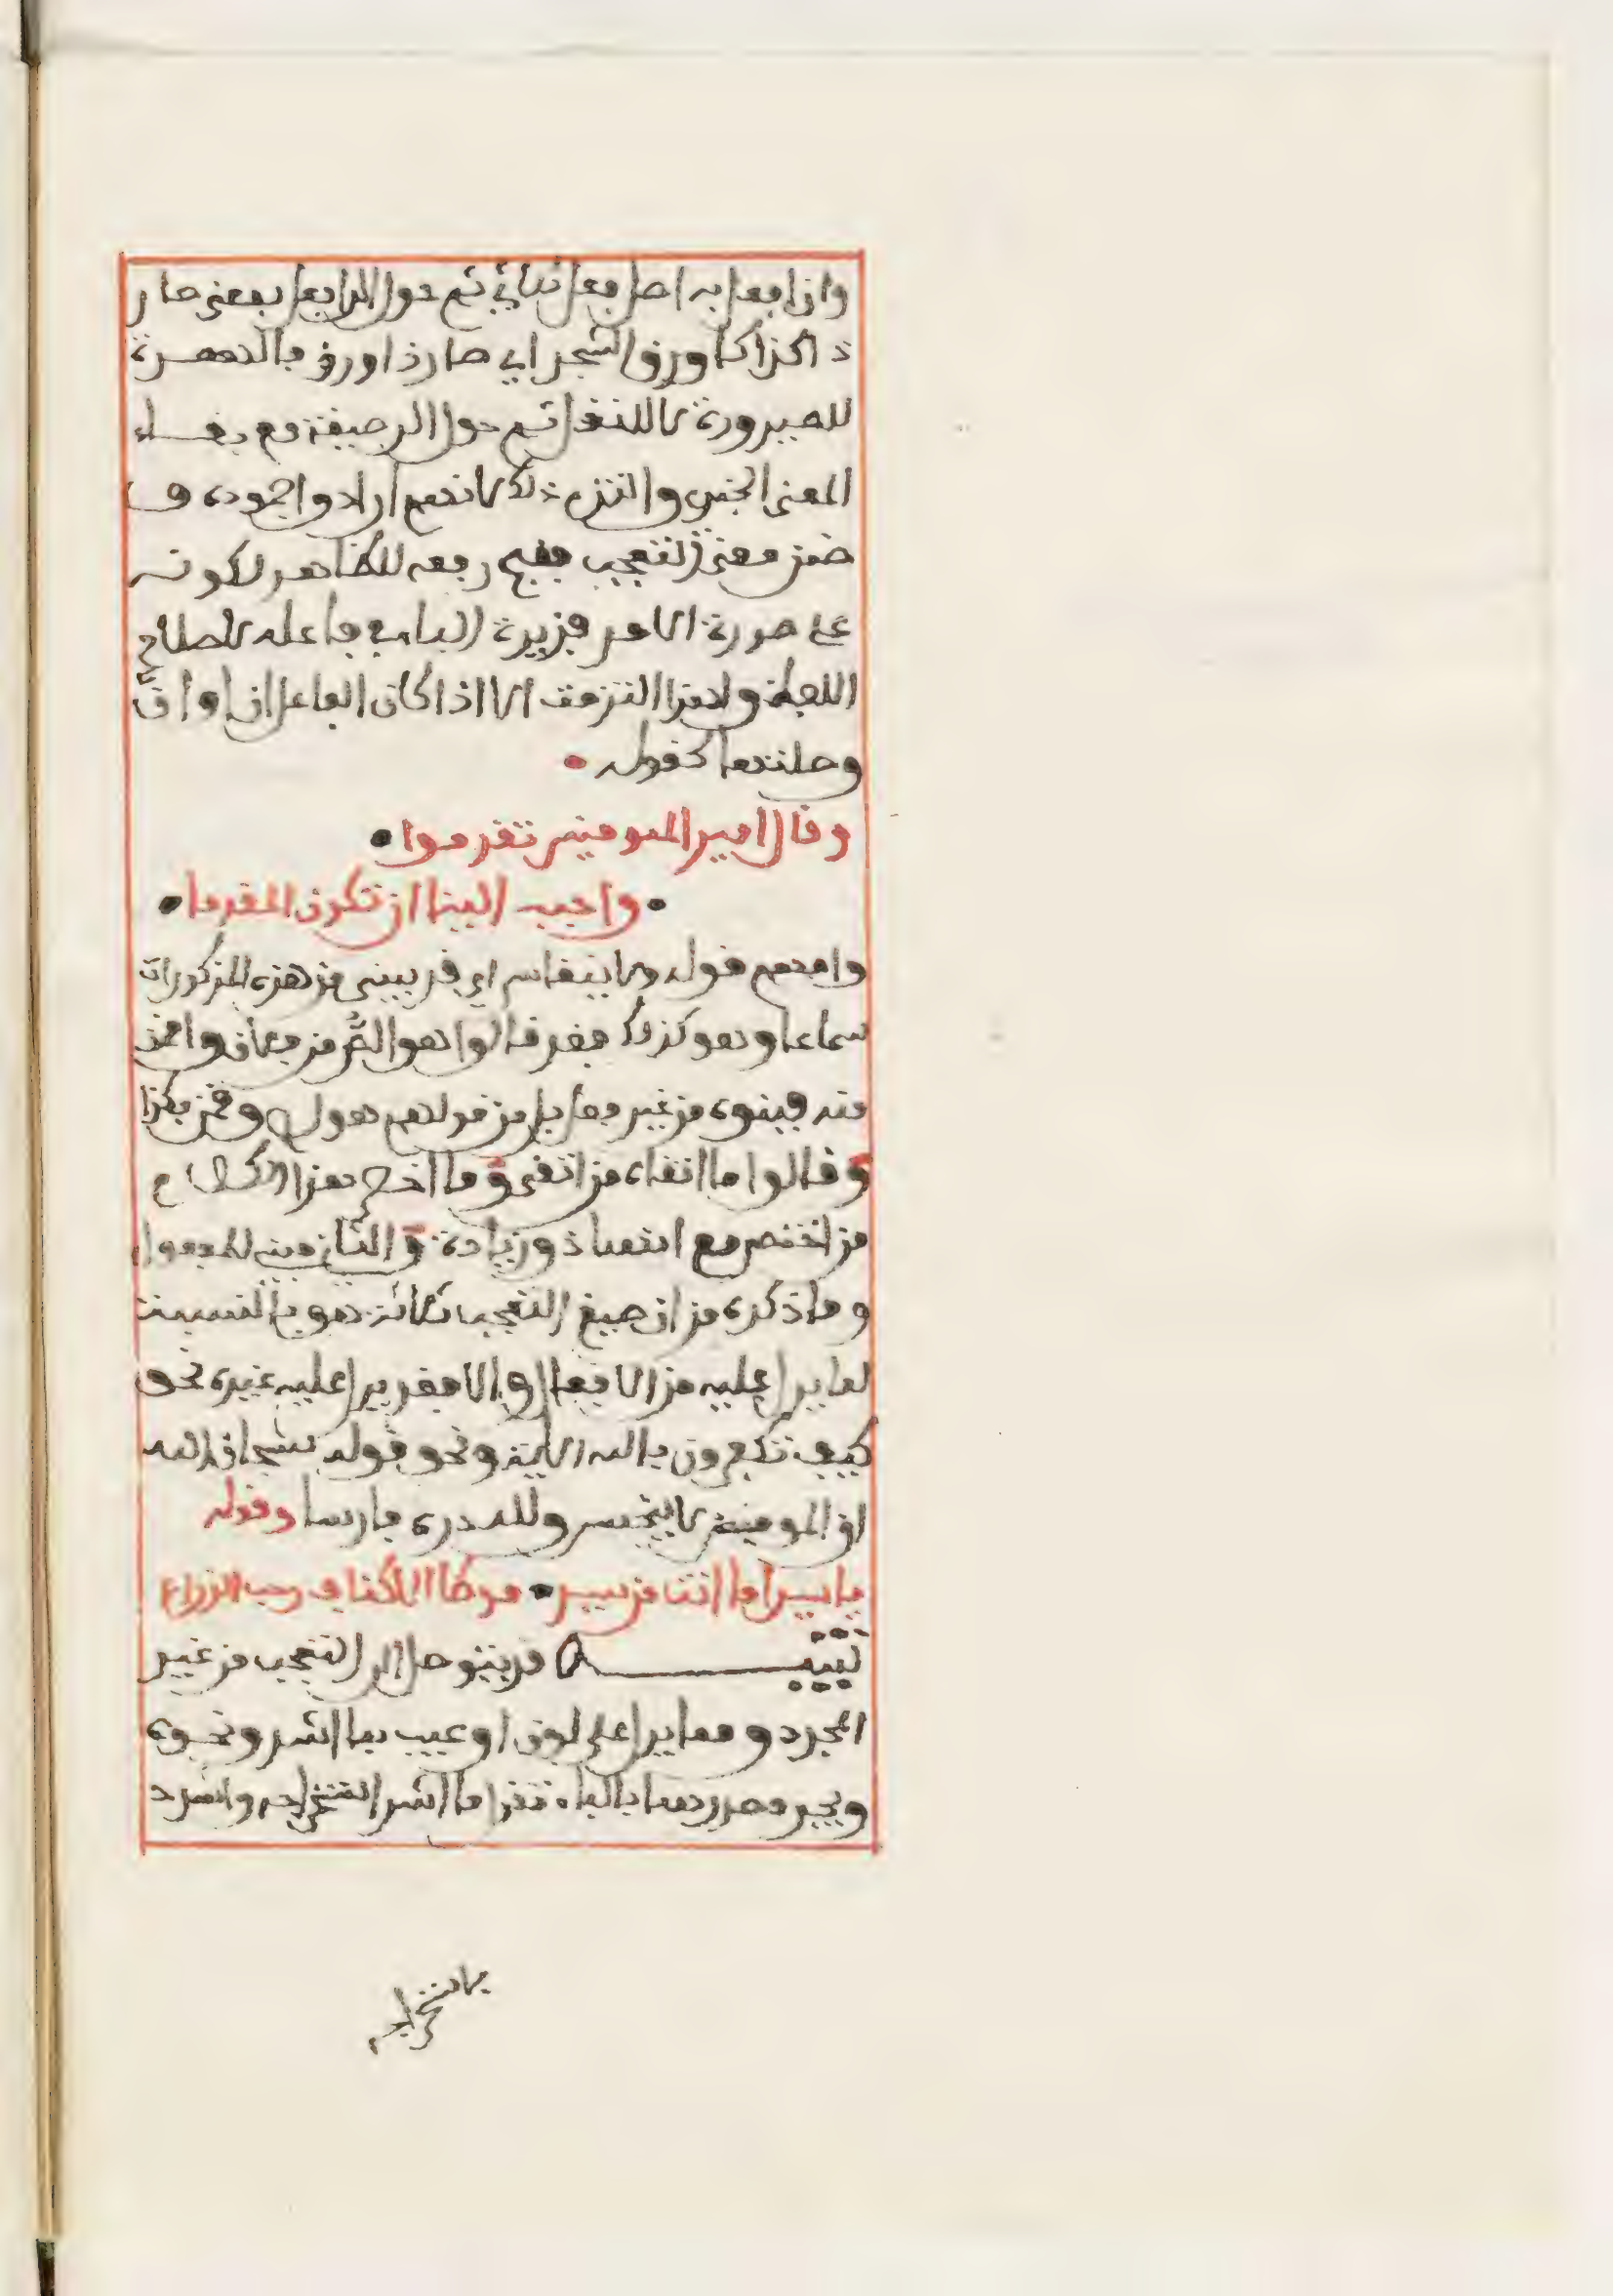 وان افعل به اصل فعل ثلاثي ثم حول الى افعل بمعنى صار
ذا كذا كاورق الشجر اي صار ذا ورق فالهمزة
للصيرورة لا للنقل ثم حول الى صيغة مع بقاء
المعنى الخبري والتزم ذلك لانهم ارادوا جموده و
ضمن معنى التعجب فقبح رفعه للظاهر لكونه
على صورة الامر فزيدة الباء في فاعله لاصلاح
اللفظ ولهذا التزمت الا اذا كان الفاعل ان او ان
وصلتهما كقوله
وقال امير المومنين تقدموا
واحبب الينا ان تكون المقدما
وافهم قوله ولا ينقاس اي قد يبنى من هذه المذكورات
سماعا وهو كذلك فقد قالوا هو الص من واخذ
منه فبنوه من غير فعل بل من قولهم هو لص وقمن بكذا
وقالوا ما اتقاه من اتقى وما اخصر هذا الكلام
من اختصر مع انتفاء وزيادة والثاني مبني للمجهول
وما ذكره من ان صيغ التعجب ثلاثة هو بالنسبة
لما يدل عليه من الافعال والا فقد يدل عليه غيره نحو
كيف تكفرون بالله الاية ونحو قوله سبحان الله
ان المومن لا ينجس ولله دره فارسا وقوله
يا سيدا ما انت من سيد موطا الاكناف رحب الذراع
تنبيـــه قد يتوصل الى التعجب من غير
المجرد ومما يدل على لون او عيب بما اشد ونحوه
ويجر مصدرهما بالباء فتقول ما اشد استخراجه واشدد
باستخراجه